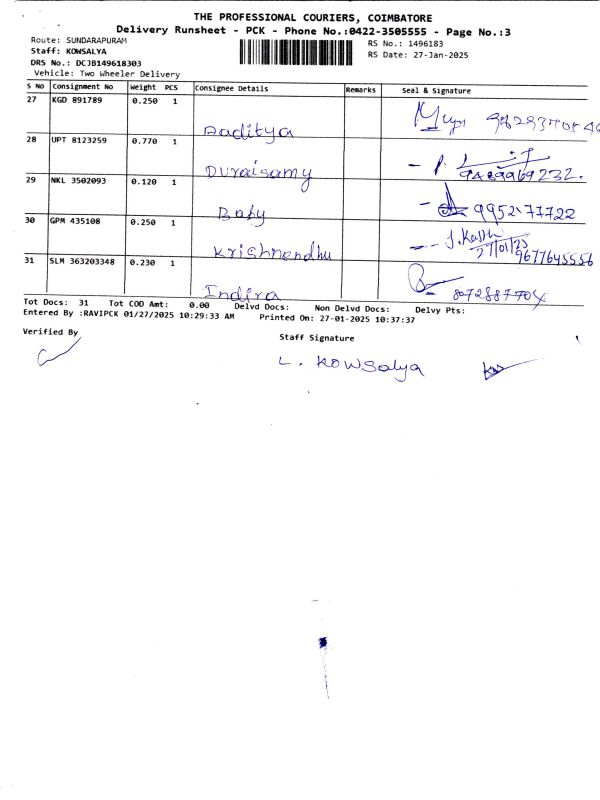 THE PROFESSIONAL COURIERS, COIMBATORE
Delivery Runsheet - PCK - Phone No.:0422-3505555 - Page No.:3
Route: SUNDARAPURAM
RS No.: 1496183
Staff: KOWSALYA
RS Date: 27-Jan-2025
DRS No.: DCJB149618303
Vehicle: Two Wheeler Delivery
S No Consignment No Weight PCS Consignee Details Remarks Seal & Signature
27 KGD 891789 0.250 1
Aaditya
28 UPT 8123259 0.770 1
Duraisamy 9489969232.
29 NKL 3502093 0.120 1
Baby 9952177722
30 GPM 435108 0.250 1
Krishnendhu 27/01/25 9677645556
31 SLM 363203348 0.230 1
Indira 872887704
Tot Docs: 31 Tot COD Amt: 0.00 Delvd Docs: Non Delvd Docs: Delvy Pts:
Entered By :RAVIPCK 01/27/2025 10:29:33 AM Printed On: 27-01-2025 10:37:37
Verified By
Staff Signature
L. Kowsalya